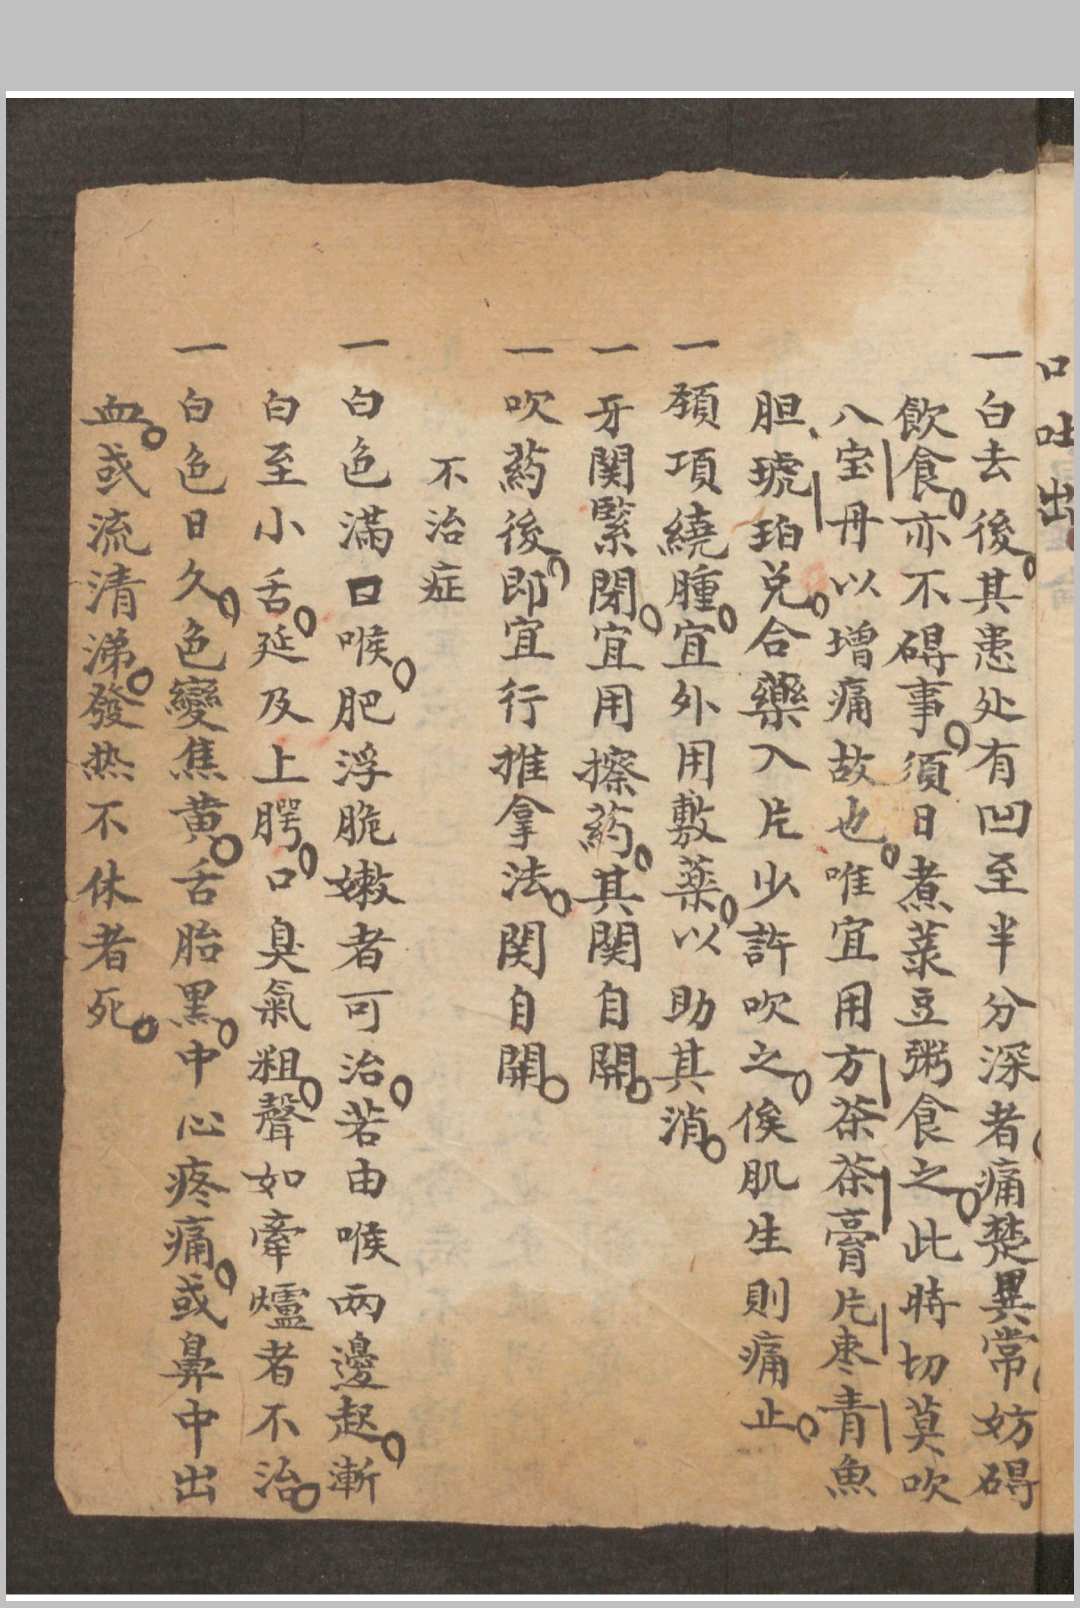 口吐出
一白去後。其患处有凹至半分深者痛楚異常妨碍
飲食。亦不碍事。須日煮菉豆粥食之。此時切莫吹
八宝丹以增痛故也。唯宜用方茶茶膏片枣青魚
胆、琥珀兑。合藥入片少許吹之。俟肌生則痛止。
一頚項繞腫。宜外用敷薬。以助其消。
一牙関緊閉。宜用擦葯。其関自開。
一吹葯後。即宜行推拿法。関自開。
不治症
一白色滿口喉。肥浮脆嫩者可治。若由喉两邊起。漸
白至小舌。延及上腭。口臭氣粗。聲如牽爐者不治。
一白色日久。色變焦黄。舌胎黑。中心疼痛。或鼻中出
血。或流清涕。發热不休者死。